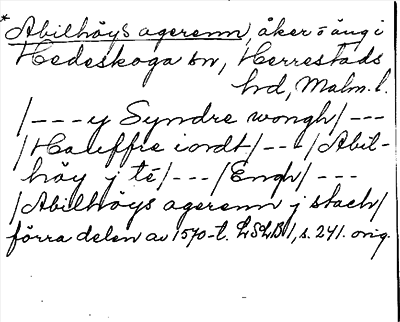 *Abilhöys agerenn, åker o äng i
Hedeskoga sn, Herrestads
hd, Malm. l.
/--- y Syndre wongh/---
/Hauffre iordt/---/Abil-
höy j té/---/Engh/---
/Abilhöys agerenn j stach/
förra delen av 1570-t. LSLB 1, s. 241. orig.